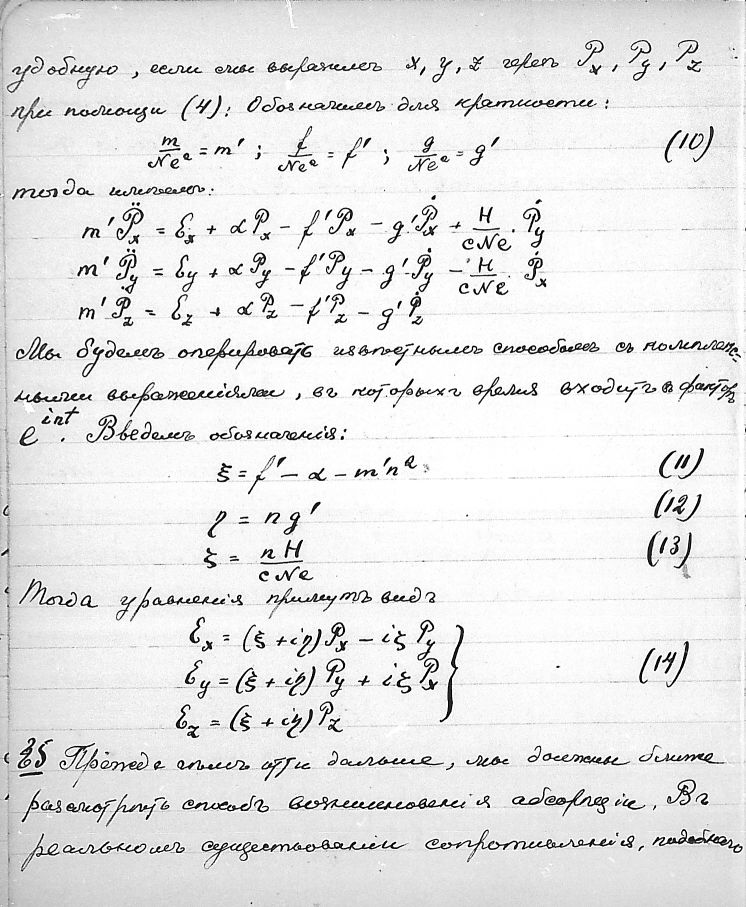 удобную, если мы выразимъ x, y, z черезъ P_x, P_y, P_z
при помощи (4): Обозначимъ для краткости:
m/Ne² = m' ; f/Ne² = f' ; g/Ne² = g' (10)
тогда имѣемъ:
m'P̈_x = ℰ_x + αP_x − f'P_x − g'Ṗ_x + H/cNe · Ṗ_y
m'P̈_y = ℰ_y + αP_y − f'P_y − g'Ṗ_y − H/cNe · Ṗ_x
m'P̈_z = ℰ_z + αP_z − f'P_z − g'Ṗ_z
Мы будемъ оперировать извѣстнымъ способомъ съ комплекс-
ными выраженіями, въ которыхъ время входитъ въ факторъ
e^int. Введемъ обозначенія:
ξ = f' − α − m'n² (11)
η = ng' (12)
ζ = nH/cNe (13)
Тогда уравненія примутъ видъ
ℰ_x = (ξ + iη)P_x − iζP_y
ℰ_y = (ξ + iη)P_y + iζP_x } (14)
ℰ_z = (ξ + iη)P_z
§5 Прежде чѣмъ итти дальше, мы должны ближе
разсмотрѣть способъ возникновенія абсорпціи. Въ
реальномъ существованіи сопротивленія, подобнаго